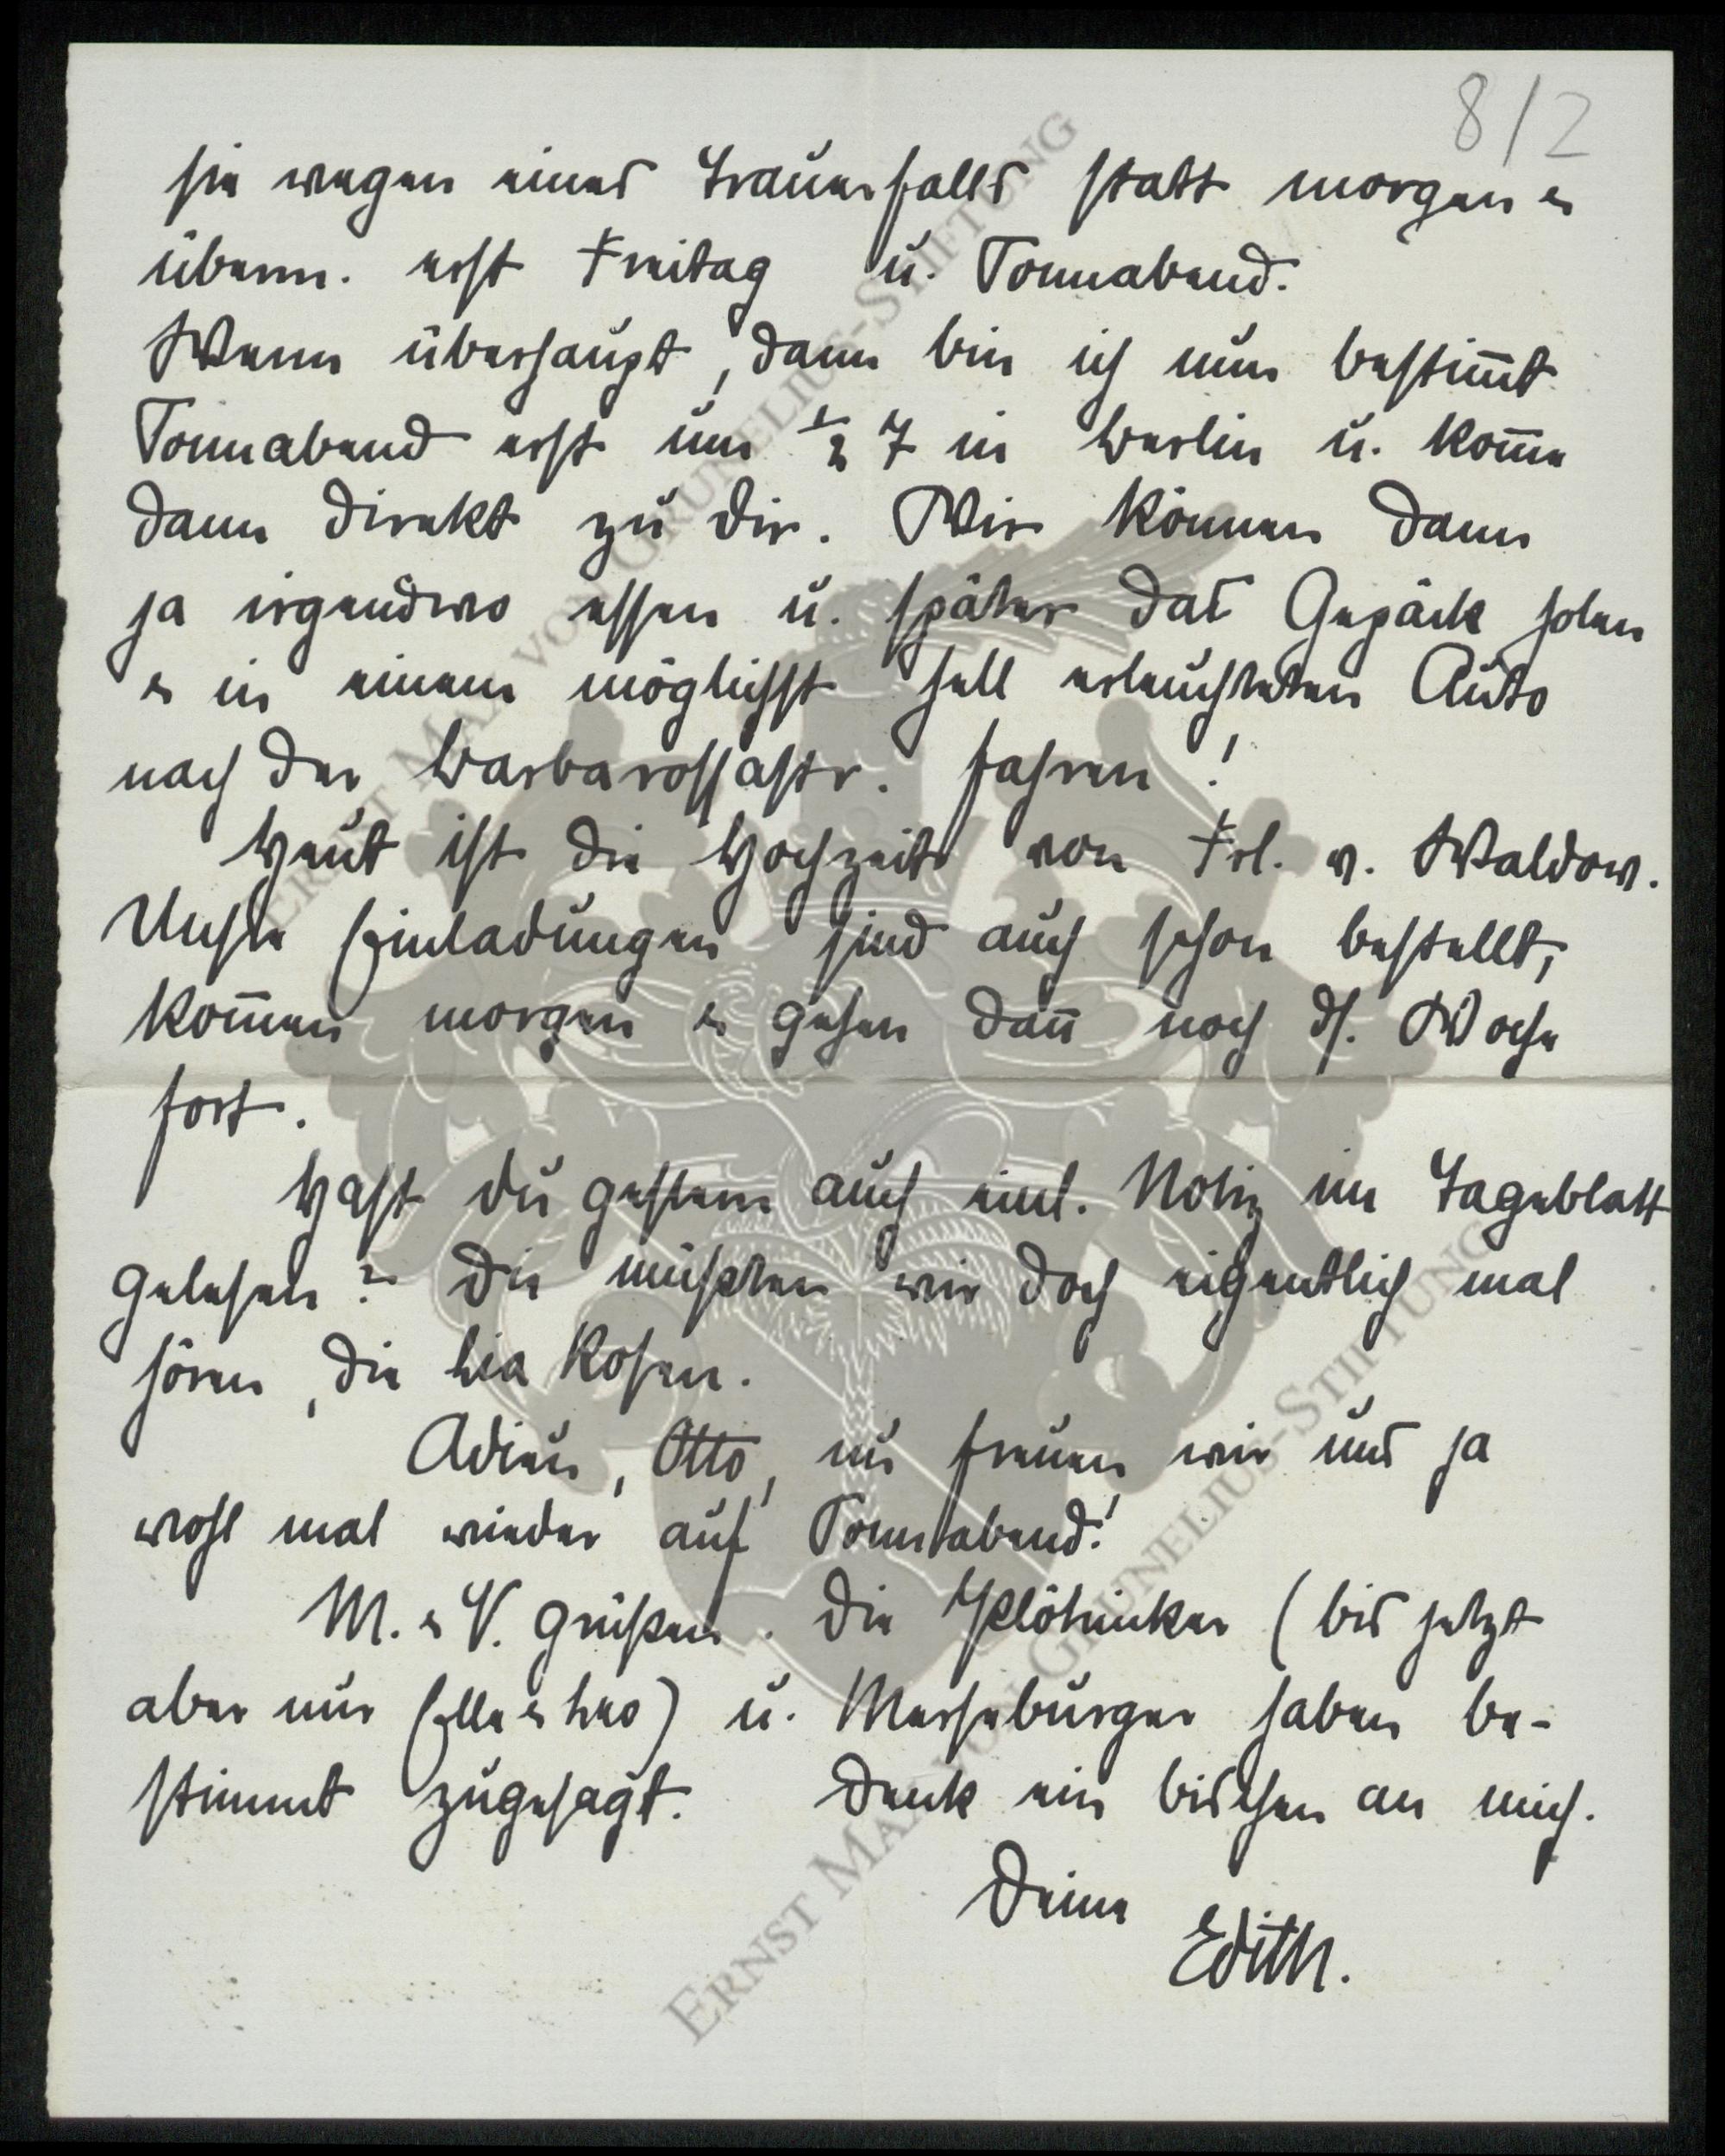 8/2
sie wegen eines Trauerfalls statt morgen &
überm. erst Freitag u. Sonnabend.
Wenn überhaupt, dann bin ich nun bestim̅t
Sonnabend erst um ½ 7 in Berlin u. kom̅e
dann direkt zu Dir. Wir können dann
ja irgendwo essen u. später das Gepäck holen
& in einem möglichst hell erleuchteten Auto
nach der Barbarossastr. fahren!
Heut ist die Hochzeit von Frl. v. Waldow.
Unsre Einladungen sind auch schon bestellt,
kom̅en morgen & gehen dan̅ noch ds. Woche
fort.
Hast Du gestern auch eine Notiz im Tageblatt
gelesen? Die müssten wir doch eigentlich mal
hören, die Lia Rosen.
Adieu, Otto, nu freuen wir uns ja
wohl mal wieder auf Sonnabend!
M. & V. grüßen. Die (bis jetzt
aber nur Ella & Leo) u. Merseburger haben be-
stimmt zugesagt. Denk ein bischen an mich.
Deine
Edith.
ERNST MAX VON GRUNELIUS-STIFTUNG
ERNST MAX VON GRUNELIUS-STIFTUNG